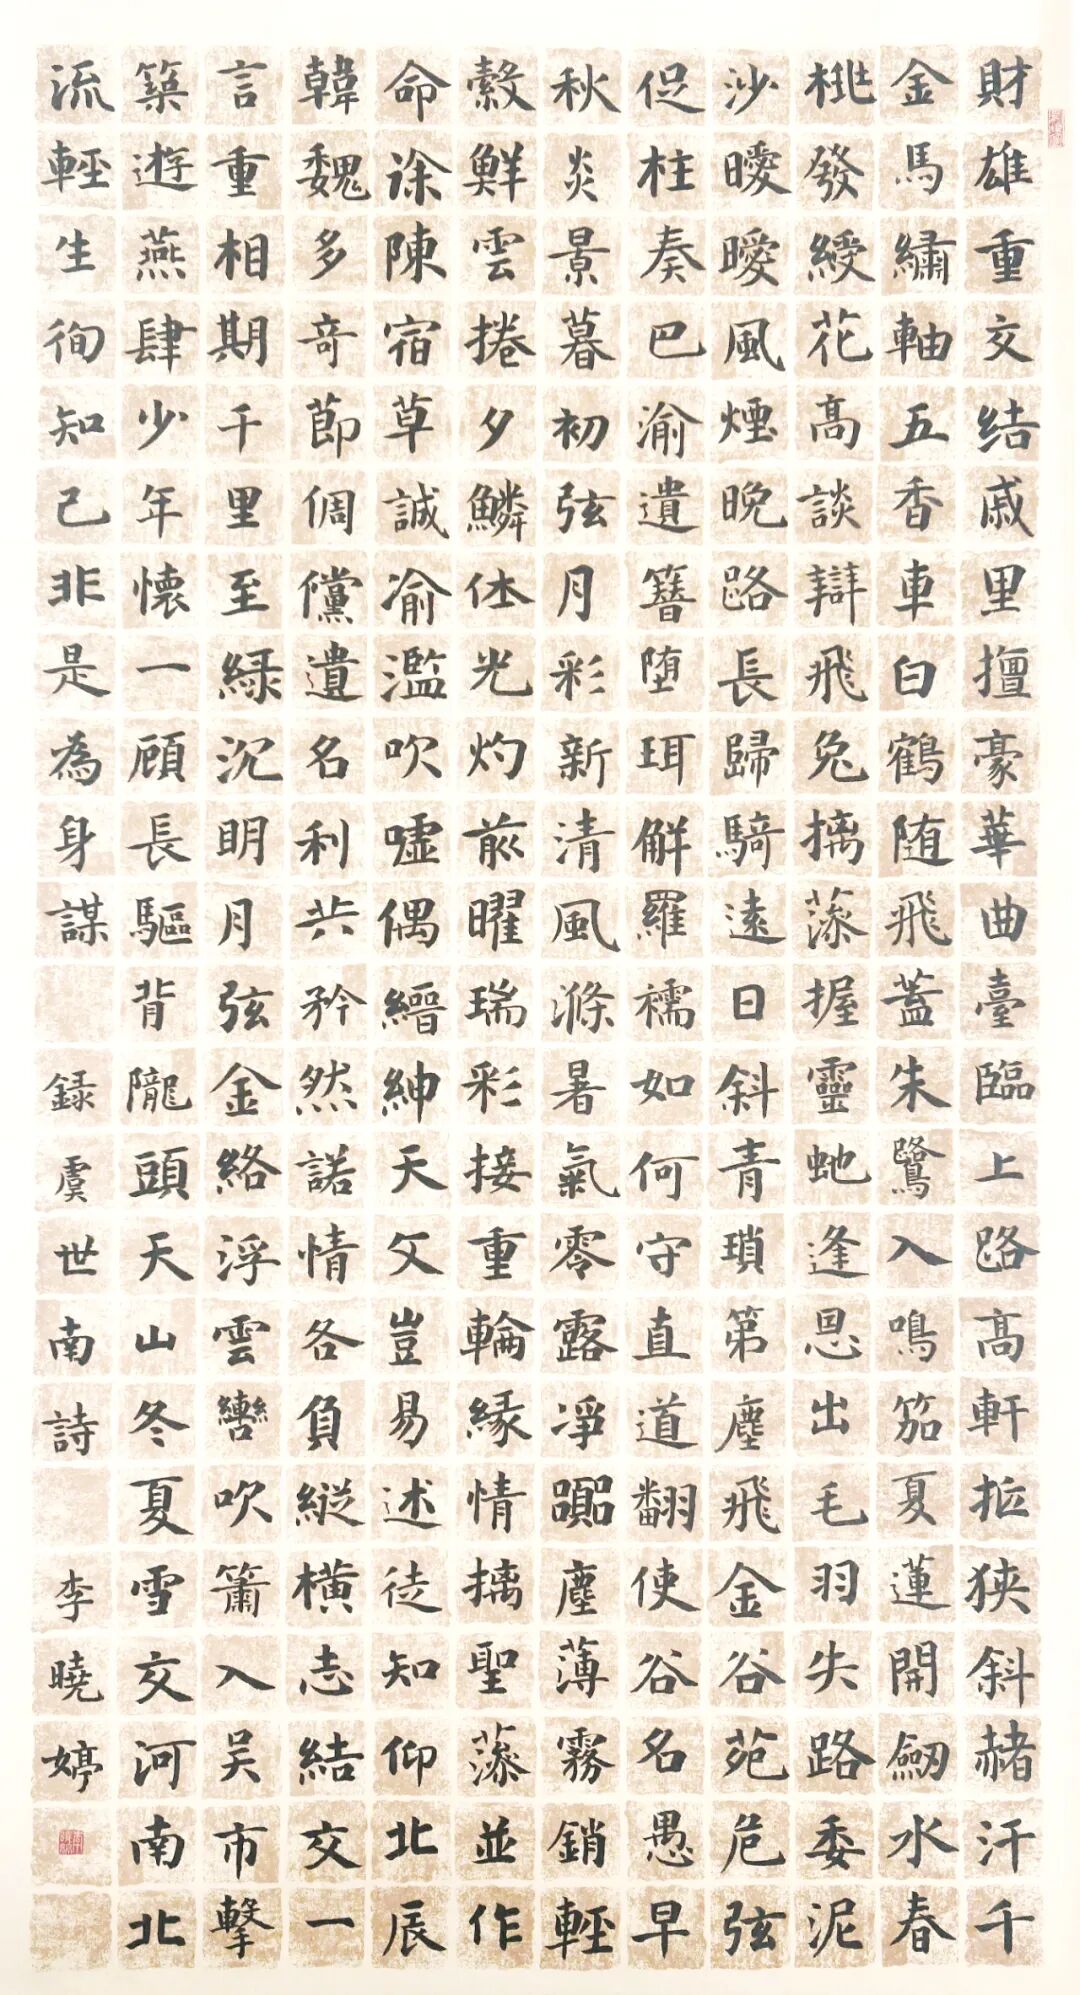 財雄重交結戚里擅豪華曲臺臨上路高軒抵狹斜赭汗千
金馬繡軸五香車白鶴随飛蓋朱鷺入鳴笳夏蓮開劔水春
桃發綬花高談辯飛兔摛藻握靈虵逢恩出毛羽失路委泥
沙曖曖風煙晚路長歸騎遠日斜青瑣第塵飛金谷苑危弦
促柱奏巴渝遺簪堕珥解羅襦如何守直道翻使谷名愚早
秋炎景暮初弦月彩新清風滌暑氣零露淨囂塵薄霧銷輕
縠鮮雲捲夕鱗休光灼前曜瑞彩接重輪緣情摛聖藻並作
命徐陳宿草誠渝濫吹噓偶縉紳天文豈易述徒知仰北辰
韓魏多奇節倜儻遺名利共矜然諾情各負縱橫志結交一
言重相期千里至緑沉明月弦金絡浮雲轡吹簫入吴市擊
築遊燕肆少年懷一顧長驅背隴頭天山冬夏雪交河南北
流輕生徇知己非是為身謀 録虞世南詩 李曉婷